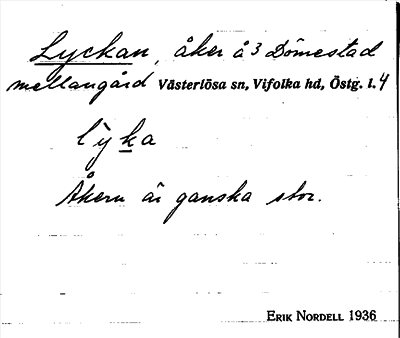 Lyckan, åker å 3 Dömestad
mellangård Västerlösa sn, Vifolka hd, Östg. l. 4
l`yka
Åkern är ganska stor.
ERIK NORDELL 1936